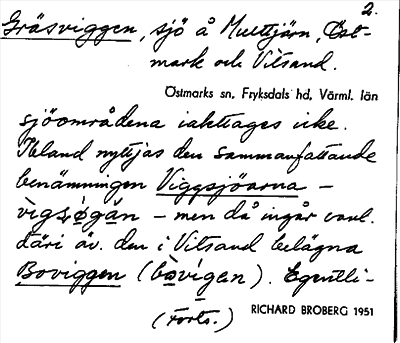 2.
Gräsviggen, sjö å Multtjärn, Öst-
mark och Vitsand.
Östmarks sn, Fryksdals hd, Värml. län
sjöområdena iakttages icke.
Ibland nyttjas den sammanfattande
benämningen Viggsjöarna –
– men då ingår vanl.
däri äv. den i Vitsand belägna
Boviggen (bòvigen). Egentli-
(Forts.)
RICHARD BROBERG 1951